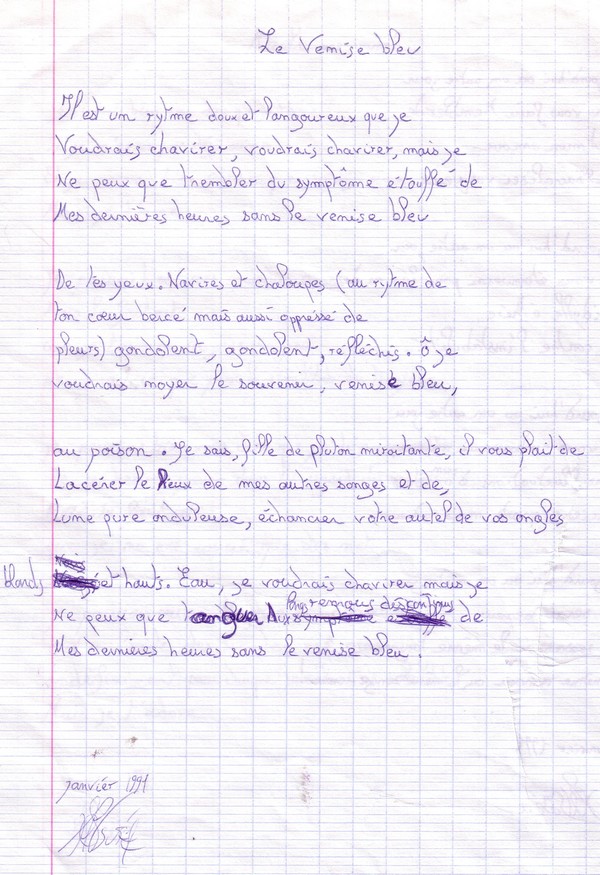 Le Venise bleu
Il est un rytme doux et langoureux que je
Voudrais chavirer, voudrais chavirer, mais je
Ne peux que trembler du symptôme étouffé de
Mes dernières heures sans le venise bleu
De tes yeux. Navires et chaloupes (au rytme de
ton cœur bercé mais aussi oppressé de
pleurs) gondolent, gondolent, réfléchis. Ô je
voudrais noyer le souvenir, venise bleu,
au poison. Je sais, fille de pluton miroitante, il vous plait de
Lacérer le lieux de mes autres songes et de,
Lune pure onduleuse, échancrer votre autel de vos ongles
blonds et hauts. Eau, je voudrais chavirer mais je
longs
Ne peux que tanguer Aux de
Mes dernières heures sans le venise bleu.
janvier 1991